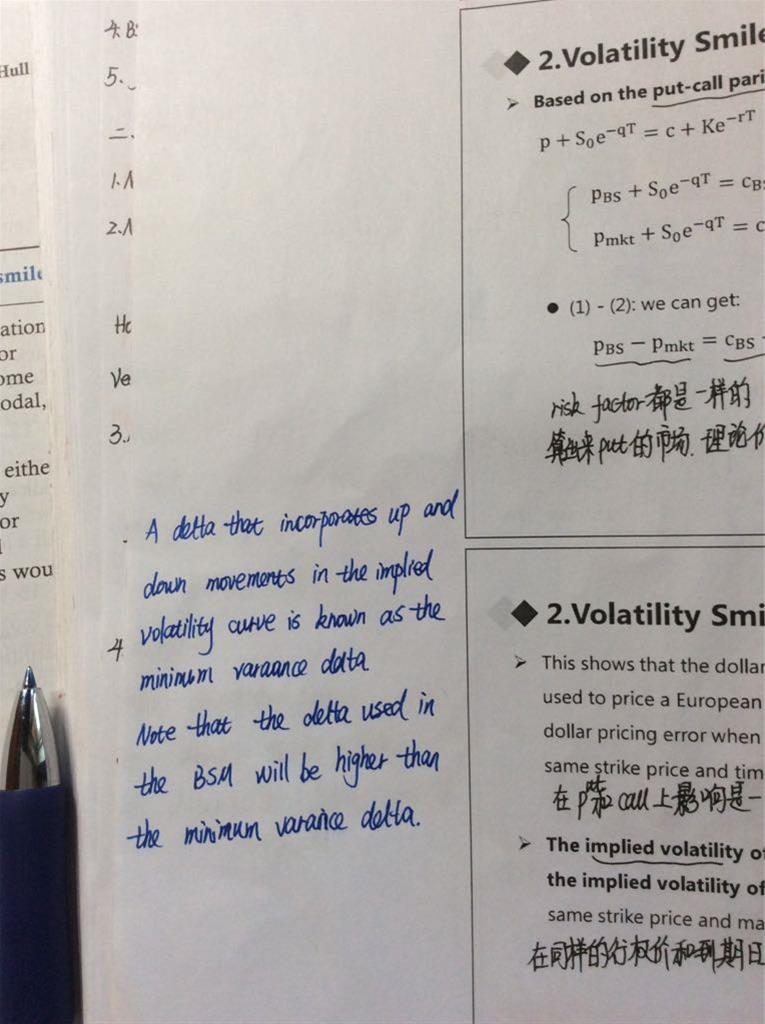 Hull
smile
ation
or
ome
odal,
eithe
y
or
l
s wou
4. B
5.
二、
1.
2.
Ho
Ve
3.
4
A delta that incorporates up and
down movements in the implied
volatility curve is known as the
minimum varaance delta
Note that the delta used in
the BSM will be higher than
the minimum varaince delta.
◆ 2.Volatility Smile
➢ Based on the put-call pari
p + S₀e^−qT = c + Ke^−rT
p_BS + S₀e^−qT = c_BS
p_mkt + S₀e^−qT = c
● (1) - (2): we can get:
p_BS − p_mkt = c_BS
risk factor都是一样的
算出来put的市场.理论价
◆ 2.Volatility Smi
➢ This shows that the dollar
used to price a European
dollar pricing error when
same strike price and tim
在put和call上影响是一
➢ The implied volatility of
the implied volatility of
same strike price and ma
在同样的行权价和到期日